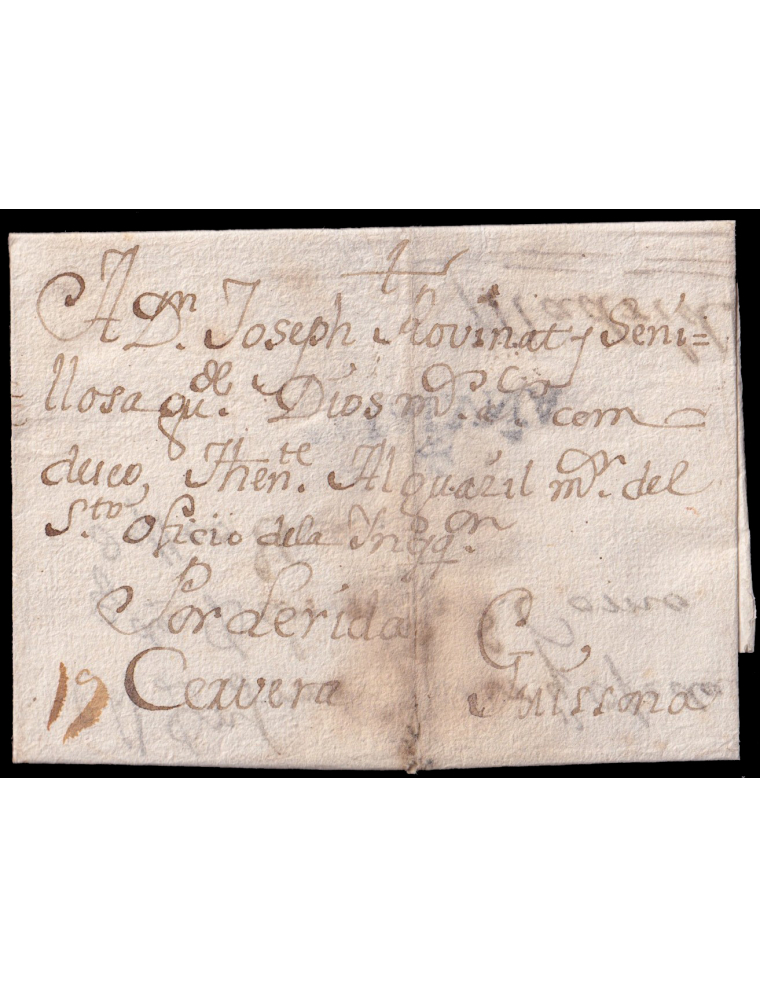 A Dn. Joseph Rovinat y Seni=
llosa que. Dios m. a. com
deseo, Thente. Alguazil mr. del
Sto. Oficio de la Ynqqon.
Por Lerida
Cervera Guissona
19